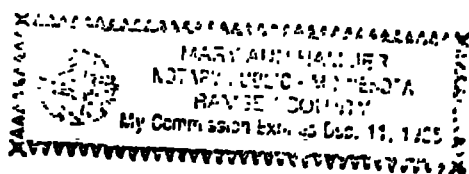 MARY ANN
NOTARY PUBLIC - MINNESOTA
RAMSEY COUNTY
My Commission Expires Dec. 11,